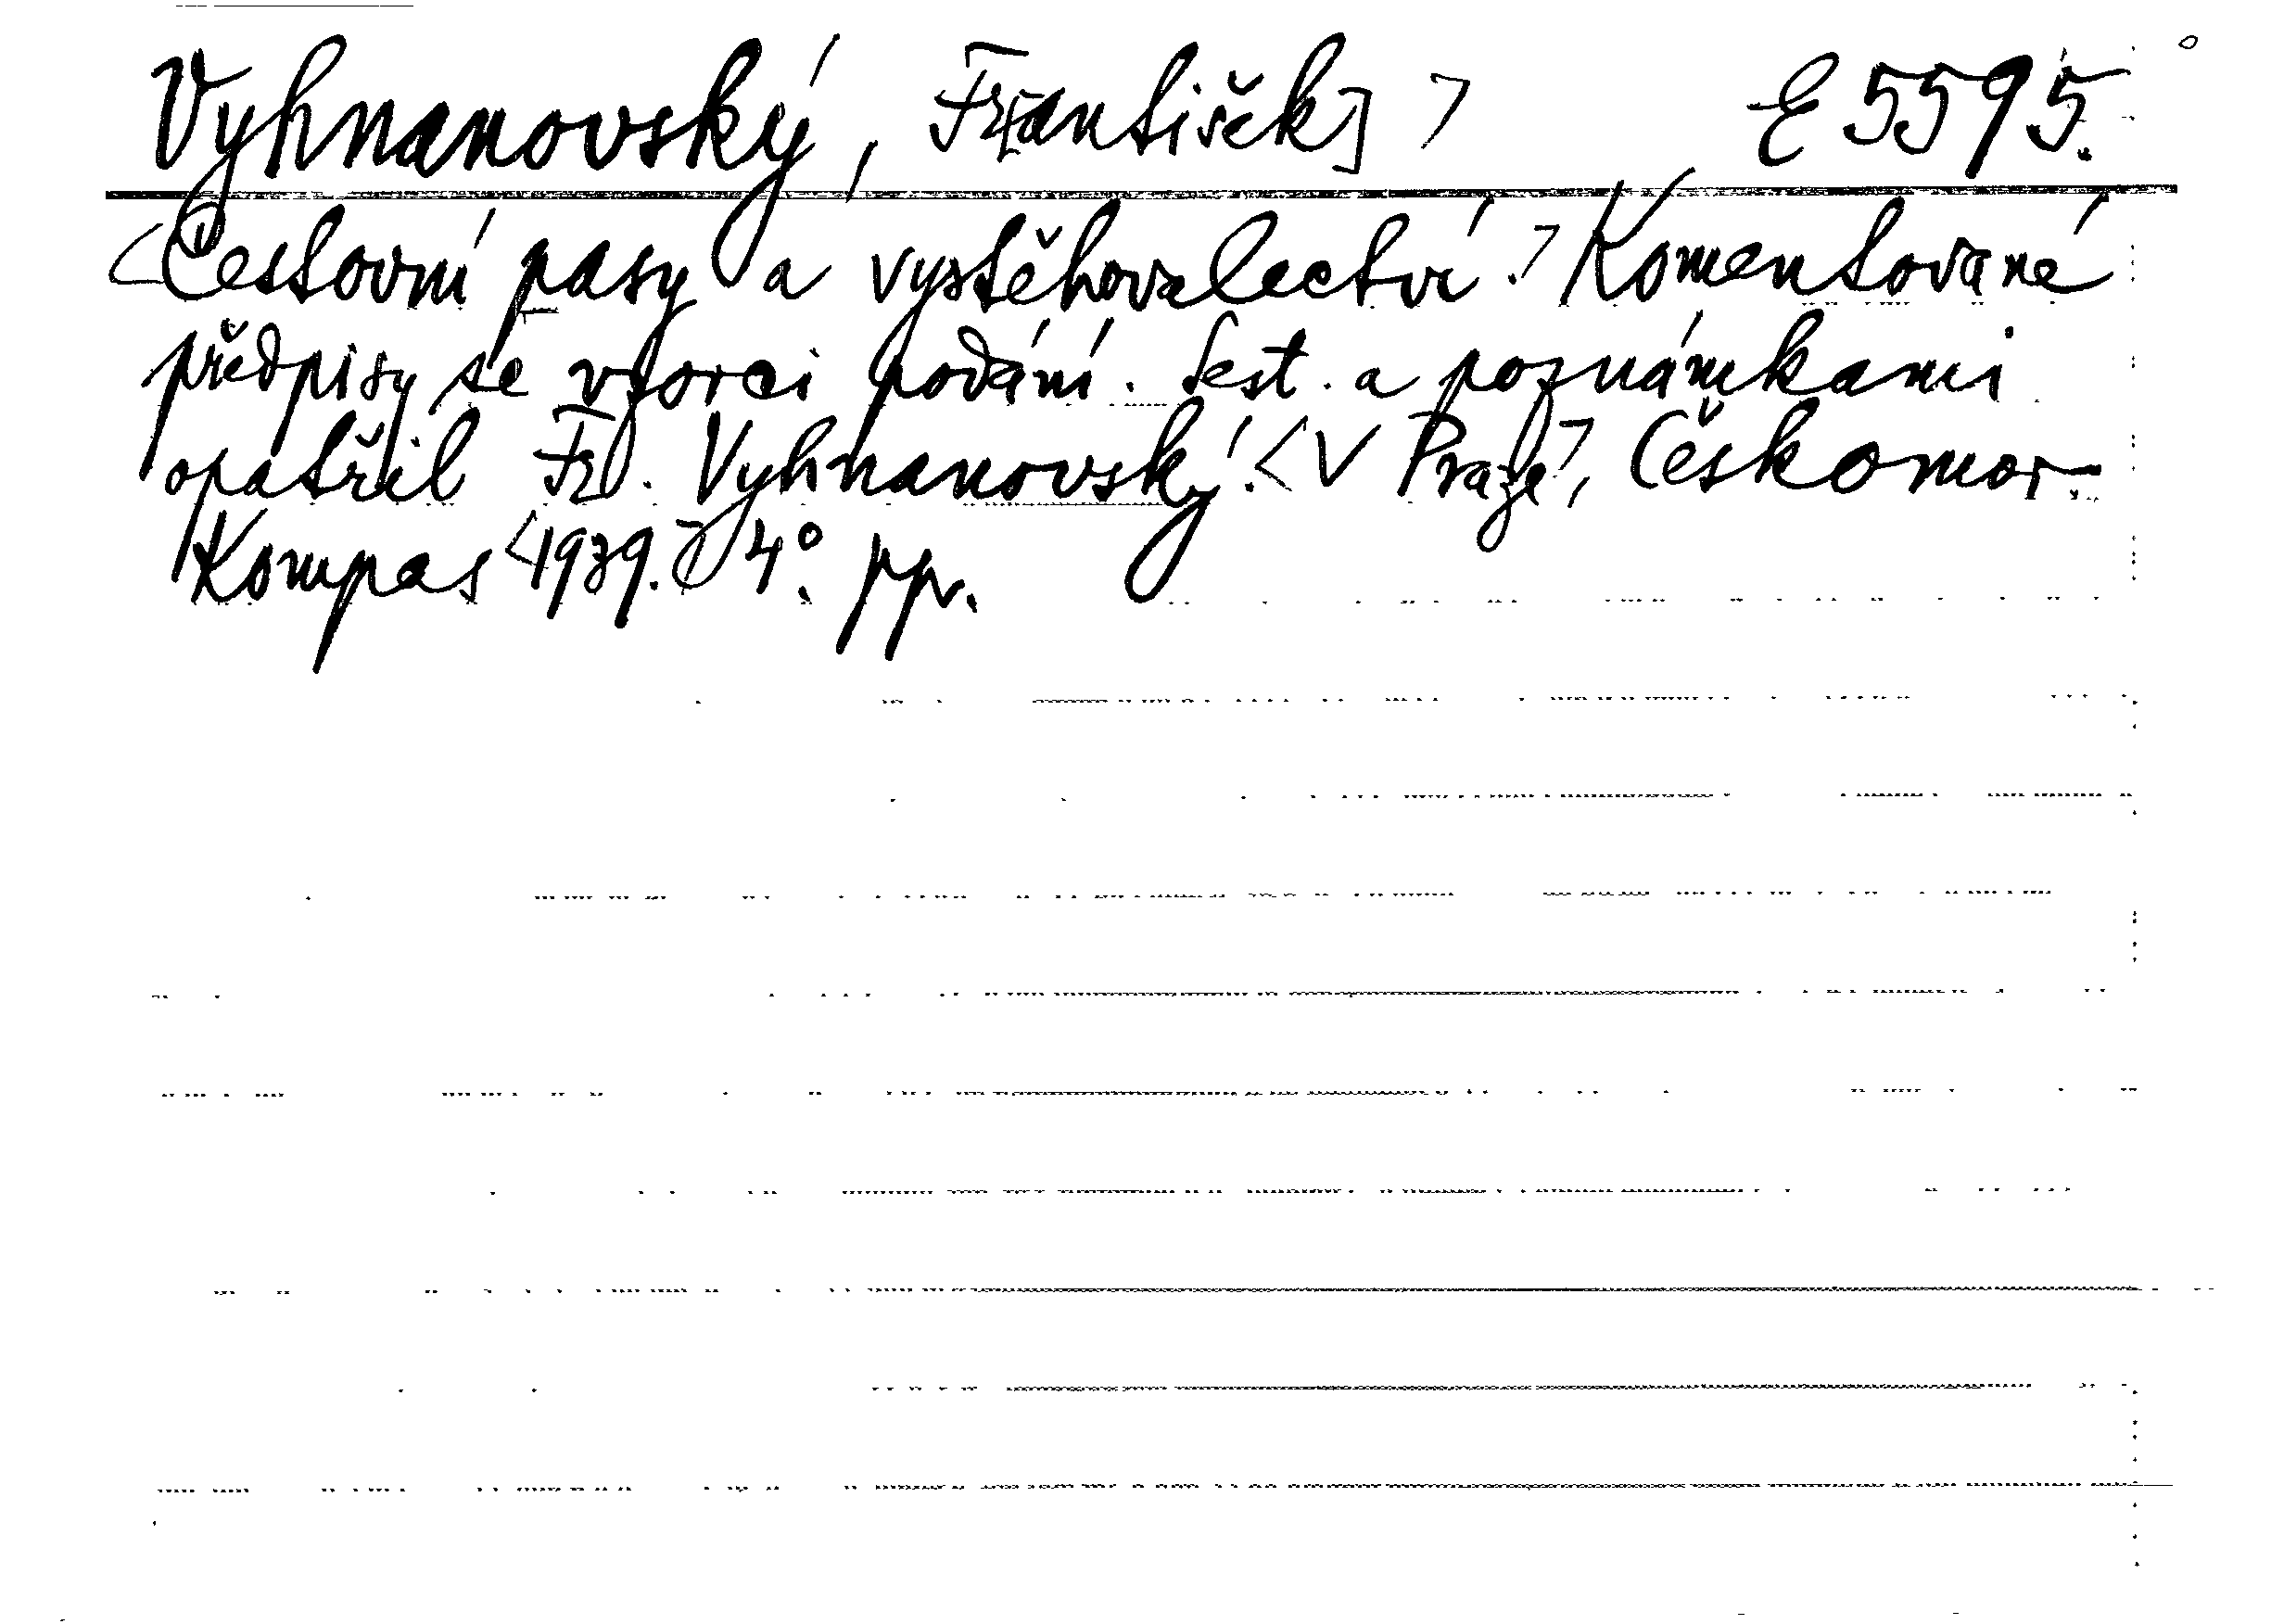 Vyhnanovský, Fr[antišek] > E 5595.
<Cestovní pasy a vystěhovalectví.> Komentované
předpisy se vzorci podání. Sest. a poznámkami
opatřil Fr. Vyhnanovský. <V Praze>, Českomor.
Kompas <1939.> 4°. ppr.